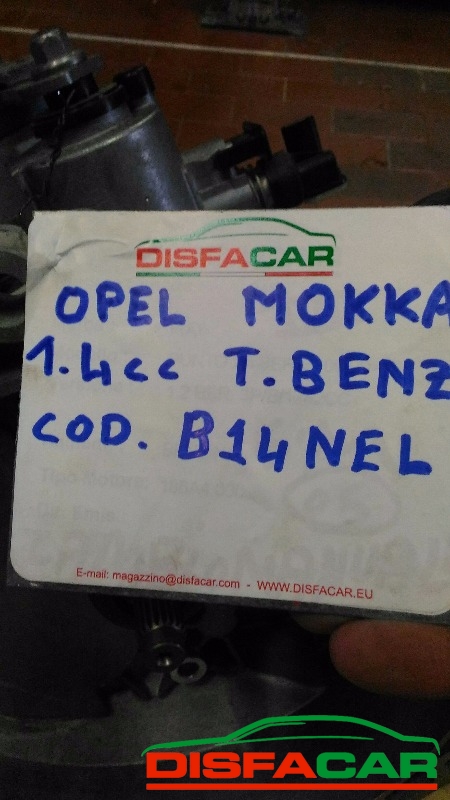 DISFACAR
OPEL MOKKA
1.4cc T.BENZ
COD. B14NEL
E-mail: magazzino@disfacar.com - WWW.DISFACAR.EU
DISFACAR